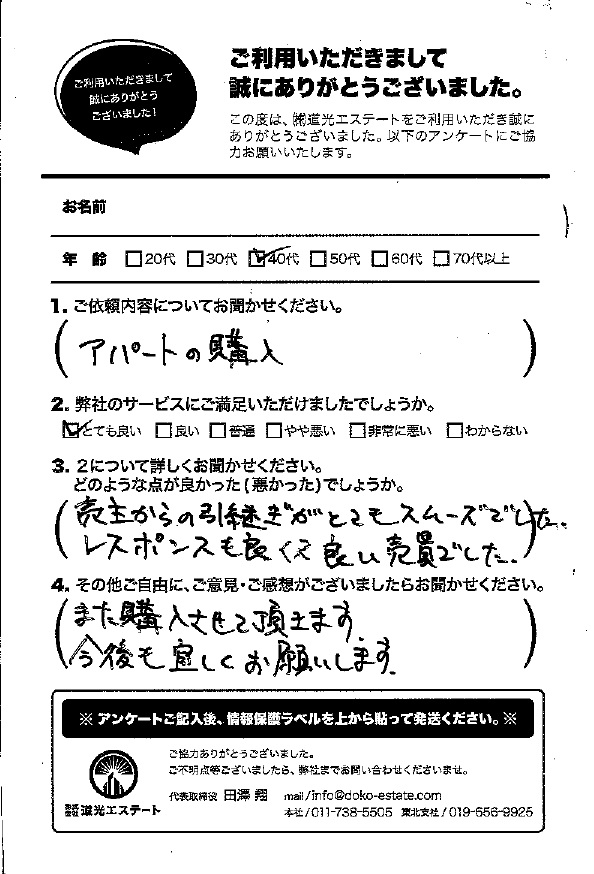 ご利用いただきまして
誠にありがとう
ございました！
ご利用いただきまして
誠にありがとうございました。
この度は、㈱道光エステートをご利用いただき誠に
ありがとうございました。以下のアンケートにご協
力お願いいたします。
お名前
年 齢 □20代 □30代 ☑40代 □50代 □60代 □70代以上
1. ご依頼内容についてお聞かせください。
(アパートの購入)
2. 弊社のサービスにご満足いただけましたでしょうか。
☑とても良い □良い □普通 □やや悪い □非常に悪い □わからない
3. 2について詳しくお聞かせください。
どのような点が良かった(悪かった)でしょうか。
(売主からの引継ぎがとてもスムーズでした。
レスポンスも良くて良い売買でした。)
4. その他ご自由に、ご意見・ご感想がございましたらお聞かせください。
(また購入させて頂きます
今後も宜しくお願いします。)
※ アンケートご記入後、情報保護ラベルを上から貼って発送ください。※
ご協力ありがとうございました。
ご不明点等ございましたら、弊社までお問い合わせくださいませ。
代表取締役 田澤 翔 mail/info@doko-estate.com
株式会社道光エステート 本社/011-738-5505 東北支社/019-656-9925